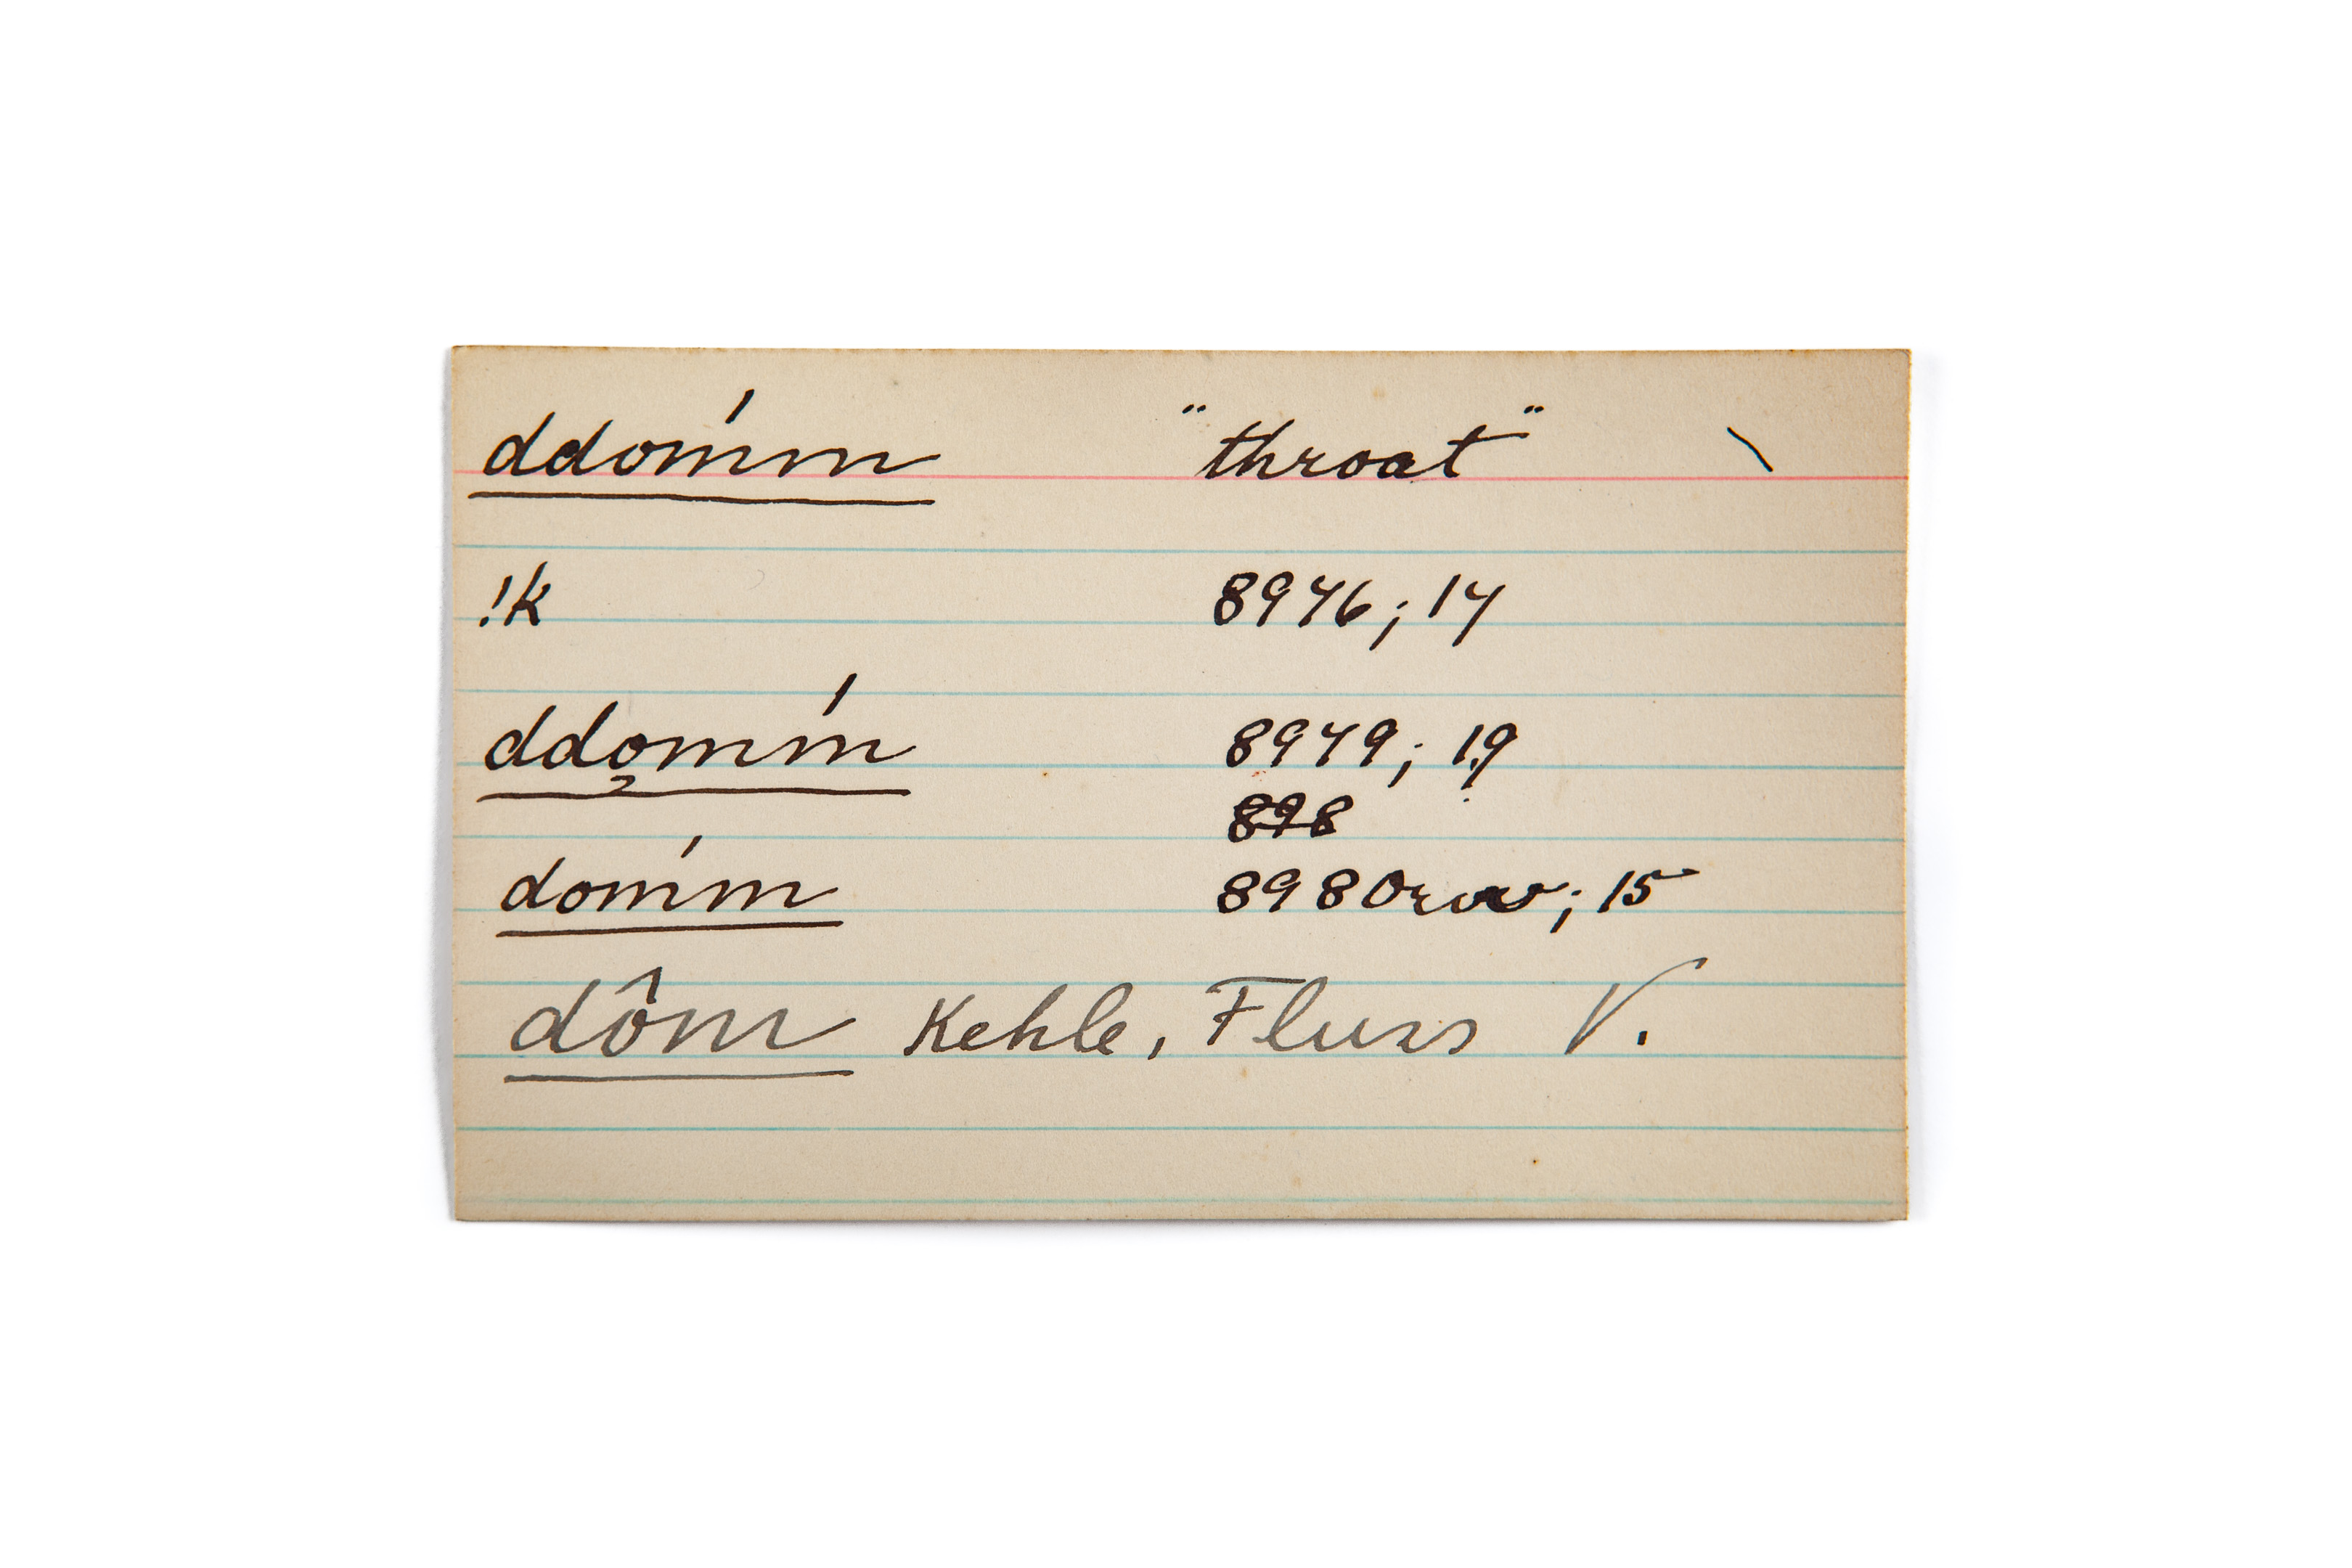 ddóm̄m "throat" \
!k 8976; 17
ddo̜mḿ 8979; 19
898
doḿm 8980rev; 15
dôm Kehle, Fluss V.